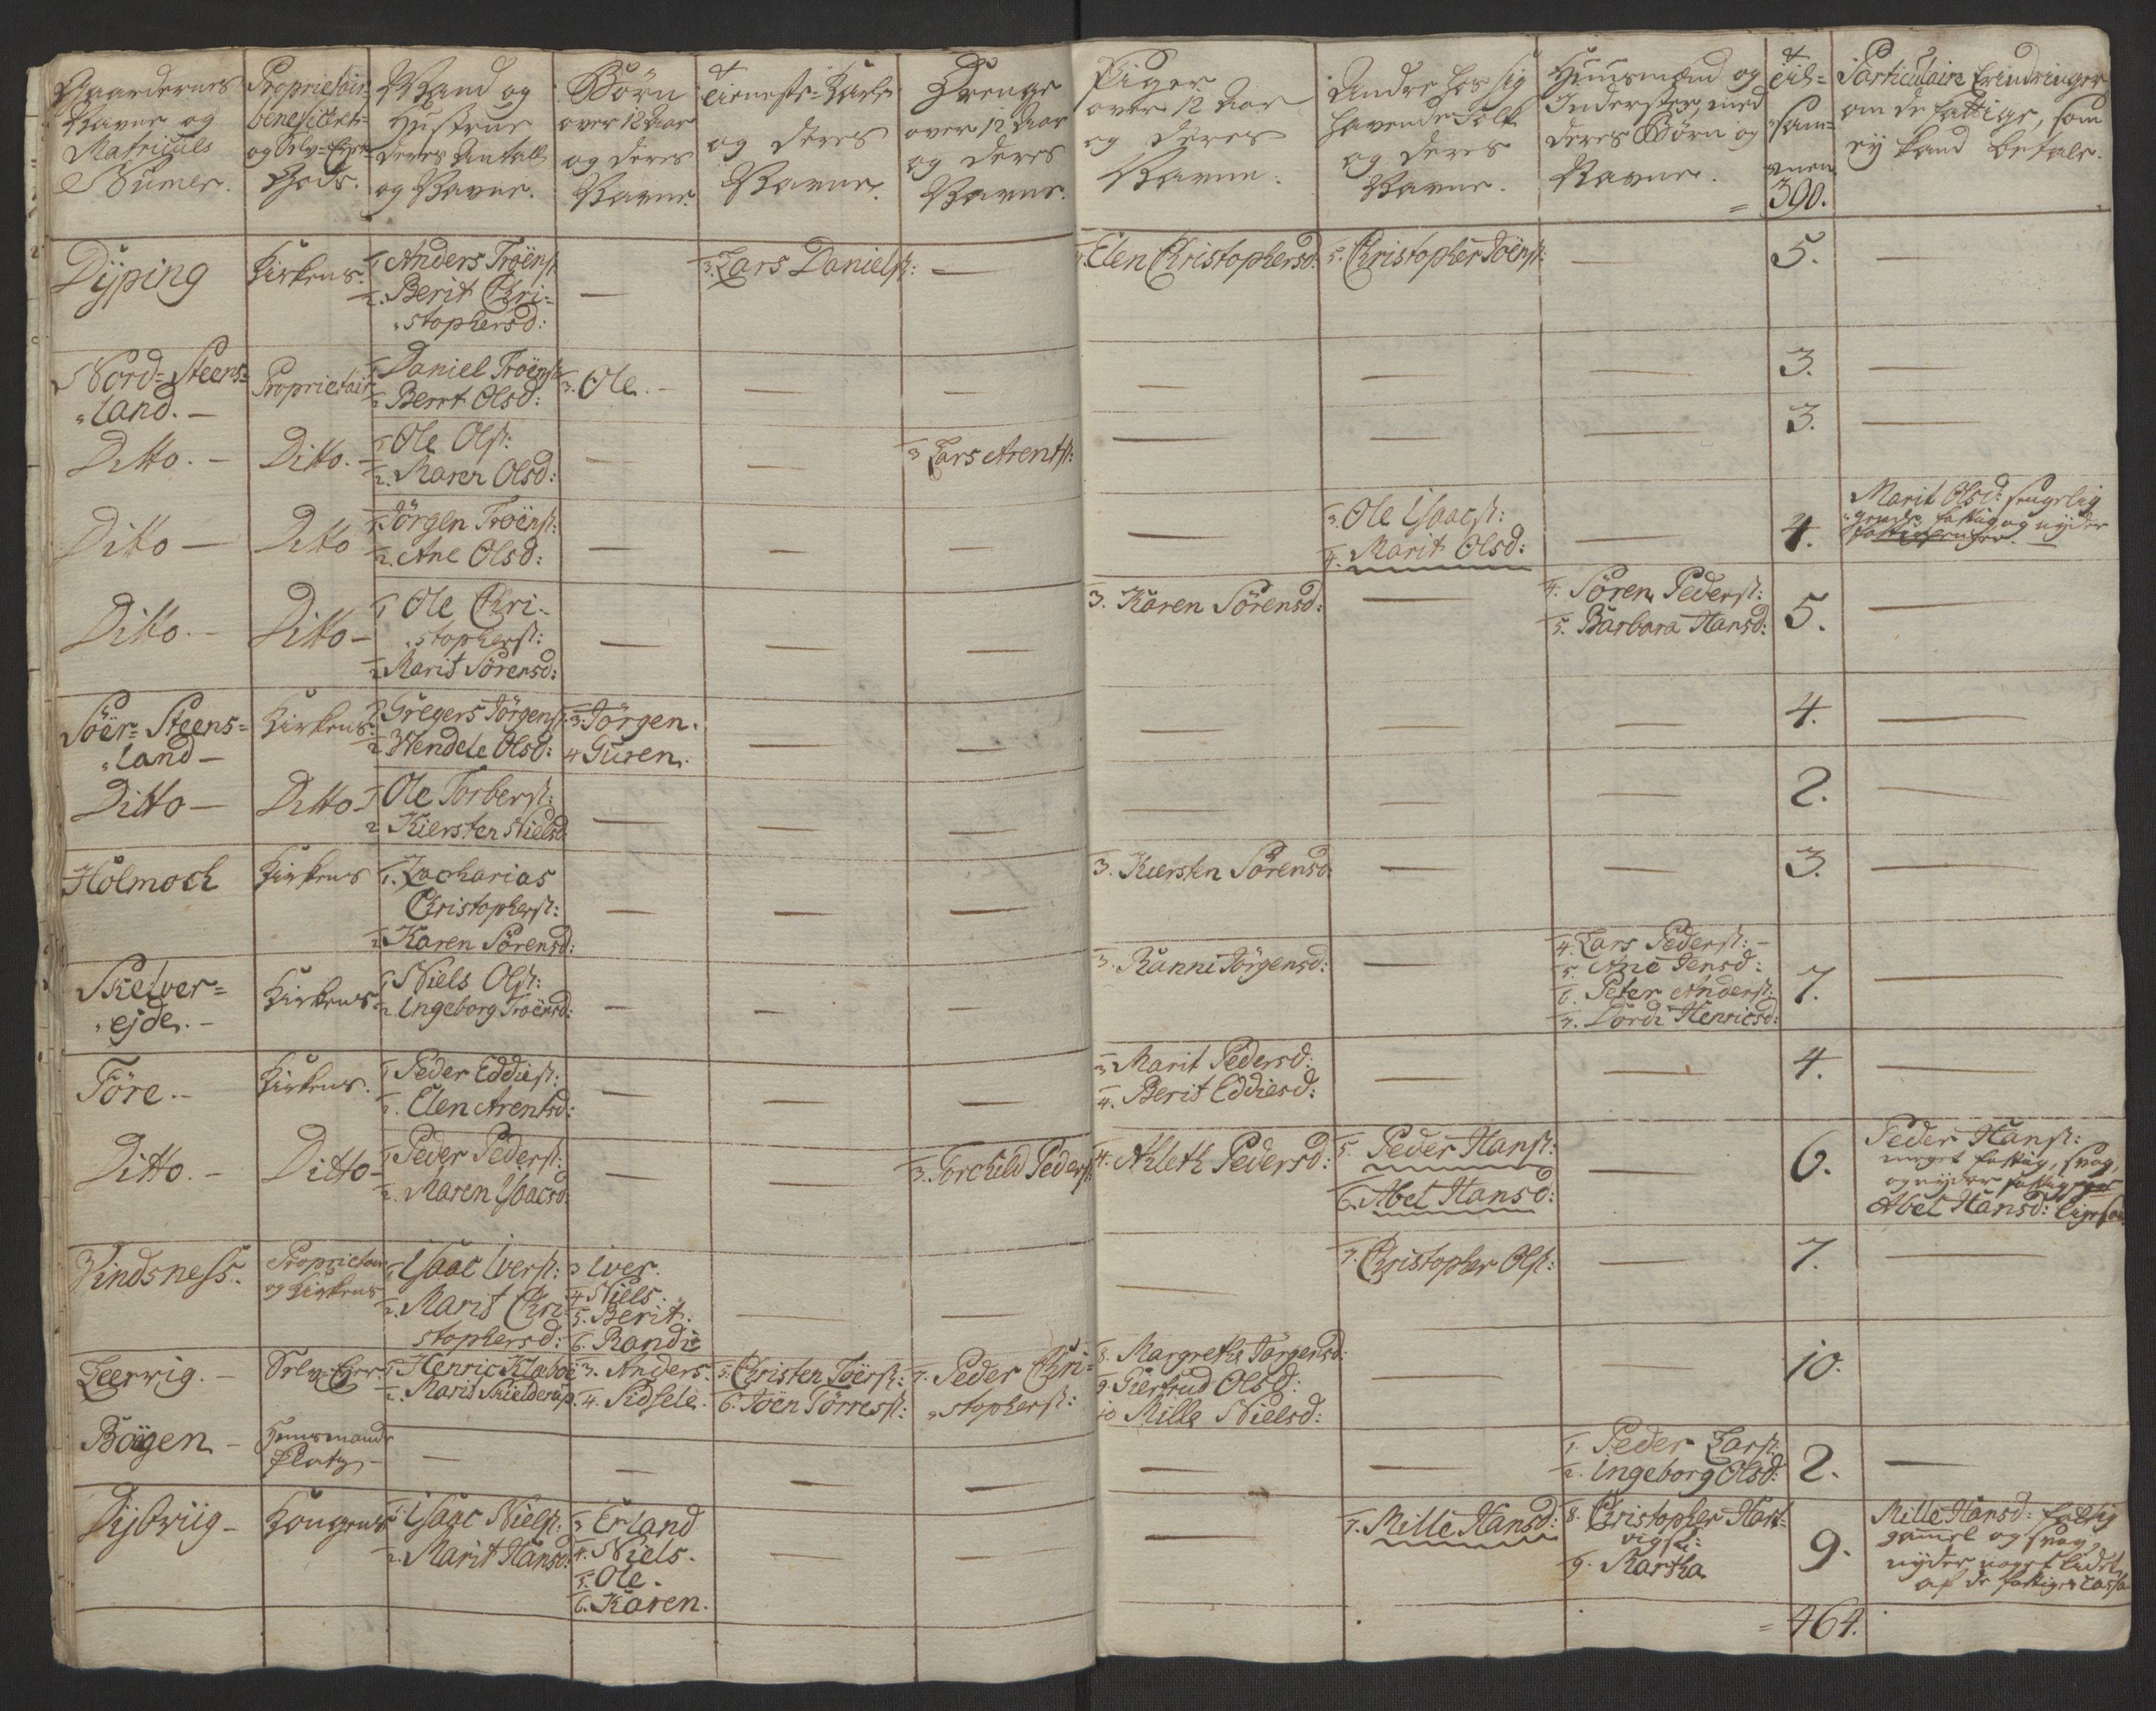 Gaardernes Navne og Matriculs Numer.
Proprietair- beneficeret- og Selv-Eyer- Gods.
Mand og Hustrue deres Antall og Navne.
Børn over 12 Aar og deres Navne.
Tieneste-Karle og deres Navne.
Drenge over 12 Aar og deres Navne.
Piger over 12 Aar og deres Navne.
Andre hos sig havende Folk og deres Navne.
Huusmænd og Inderster, med deres Børn og Navne.
Til-sam-men 390.
Particulaire Erindringer om de fattige, som ey kand betale.
Dÿping
Kirkens.
1. Anders Troënß:
2. Berit Chri-
stophersd:
3. Lars Danielß:
4. Elen Christophersd:
5. Christopher Joënß:
5.
Nord-Steens-
land.
Proprietair
1. Daniel Troënß:
2. Berrt Olsd:
3. Ole.
3.
Ditto.
Ditto.
1. Ole Olß:
2. Maren Olsd:
3 Lars Arentß:
3.
Ditto
Ditto
1. Jörgen Troënß:
2. Ane Olsd:
3. Ole Isaacß:
4. Marit Olsd:
4.
Marit Olsd: sengelig-
gende, fattig og nyder
Ditto.
Ditto
1 Ole Chri-
stopherß:
2 Marit Sörensd:
3. Karen Sörensd:
4. Sören Pederß:
5. Barbara Hansd:
5.
Söer-Steens-
land
Kirkens.
1 Gregers Jörgenß:
2 Wendele Olsd:
3. Jörgen.
4 Guren.
4.
Ditto
Ditto
1 Ole Torberß:
2 Kiersten Nielsd
2.
Holmock
Kirkens
1. Zacharias
Christopherß:
2. Karen Sörensd:
3. Kiersten Sörensd.
3.
Skelver-
ejde.
Kirkens
1 Niels Olß:
2. Ingeborg Troënsd:
3. Ranni Jörgensd:
4. Lars Pederß:
5. Ane Jensd:
6. Peter Anderß:
7. Dordi Henricsd:
7.
Före.
Kirkens.
1 Peder Eddieß:
2. Elen Arentsd:
3 Marit Pedersd:
4. Berit Eddiesd:
4.
Ditto.
Ditto
1 Peder Pederß:
2. Maren Isaacsd.
3. Torchild Pederß:
4. Ahleth Pedersd:
5. Peder Hanß:
6. Abel Hansd:
6.
Peder Hanß:
meget fattig, svag,
og nyder
Abel Hansd: ligesaa
Vindsness.
Proprietair
og Kirkens
1. Isaac Iverß:
2. Marit Chri-
stophersd:
3 Iver.
4 Niels.
5. Berit.
6. Randi
7. Christopher Olß:
7.
Leervig.
Selv-Eyer
1 Henric Klæboe
2. Marit Skielderup.
3. Anders.
4. Sidsele.
5. Christen Joërß:
6. Joën Törresß:
7. Peder Chri-
stopherß:
8. Margrethe Jörgensd:
9. Giertrud Olsd:
10 Mille Nielsd:
10.
Böigen
Huusmands
Platz
1. Peder Larß:
2. Ingeborg Olsd:
2.
Dÿbvig
Kongens
1. Isaac Nielß:
2. Marit Hansd:
3 Erland
4. Niels.
5. Ole.
6. Karen.
7. Mille Hansd:
8. Christopher Hart-
vigß:
9. Martha
9.
Mille Hansd: fattig
gammel og svag,
nyder noget lidet
af de fattiges Cassa
464.